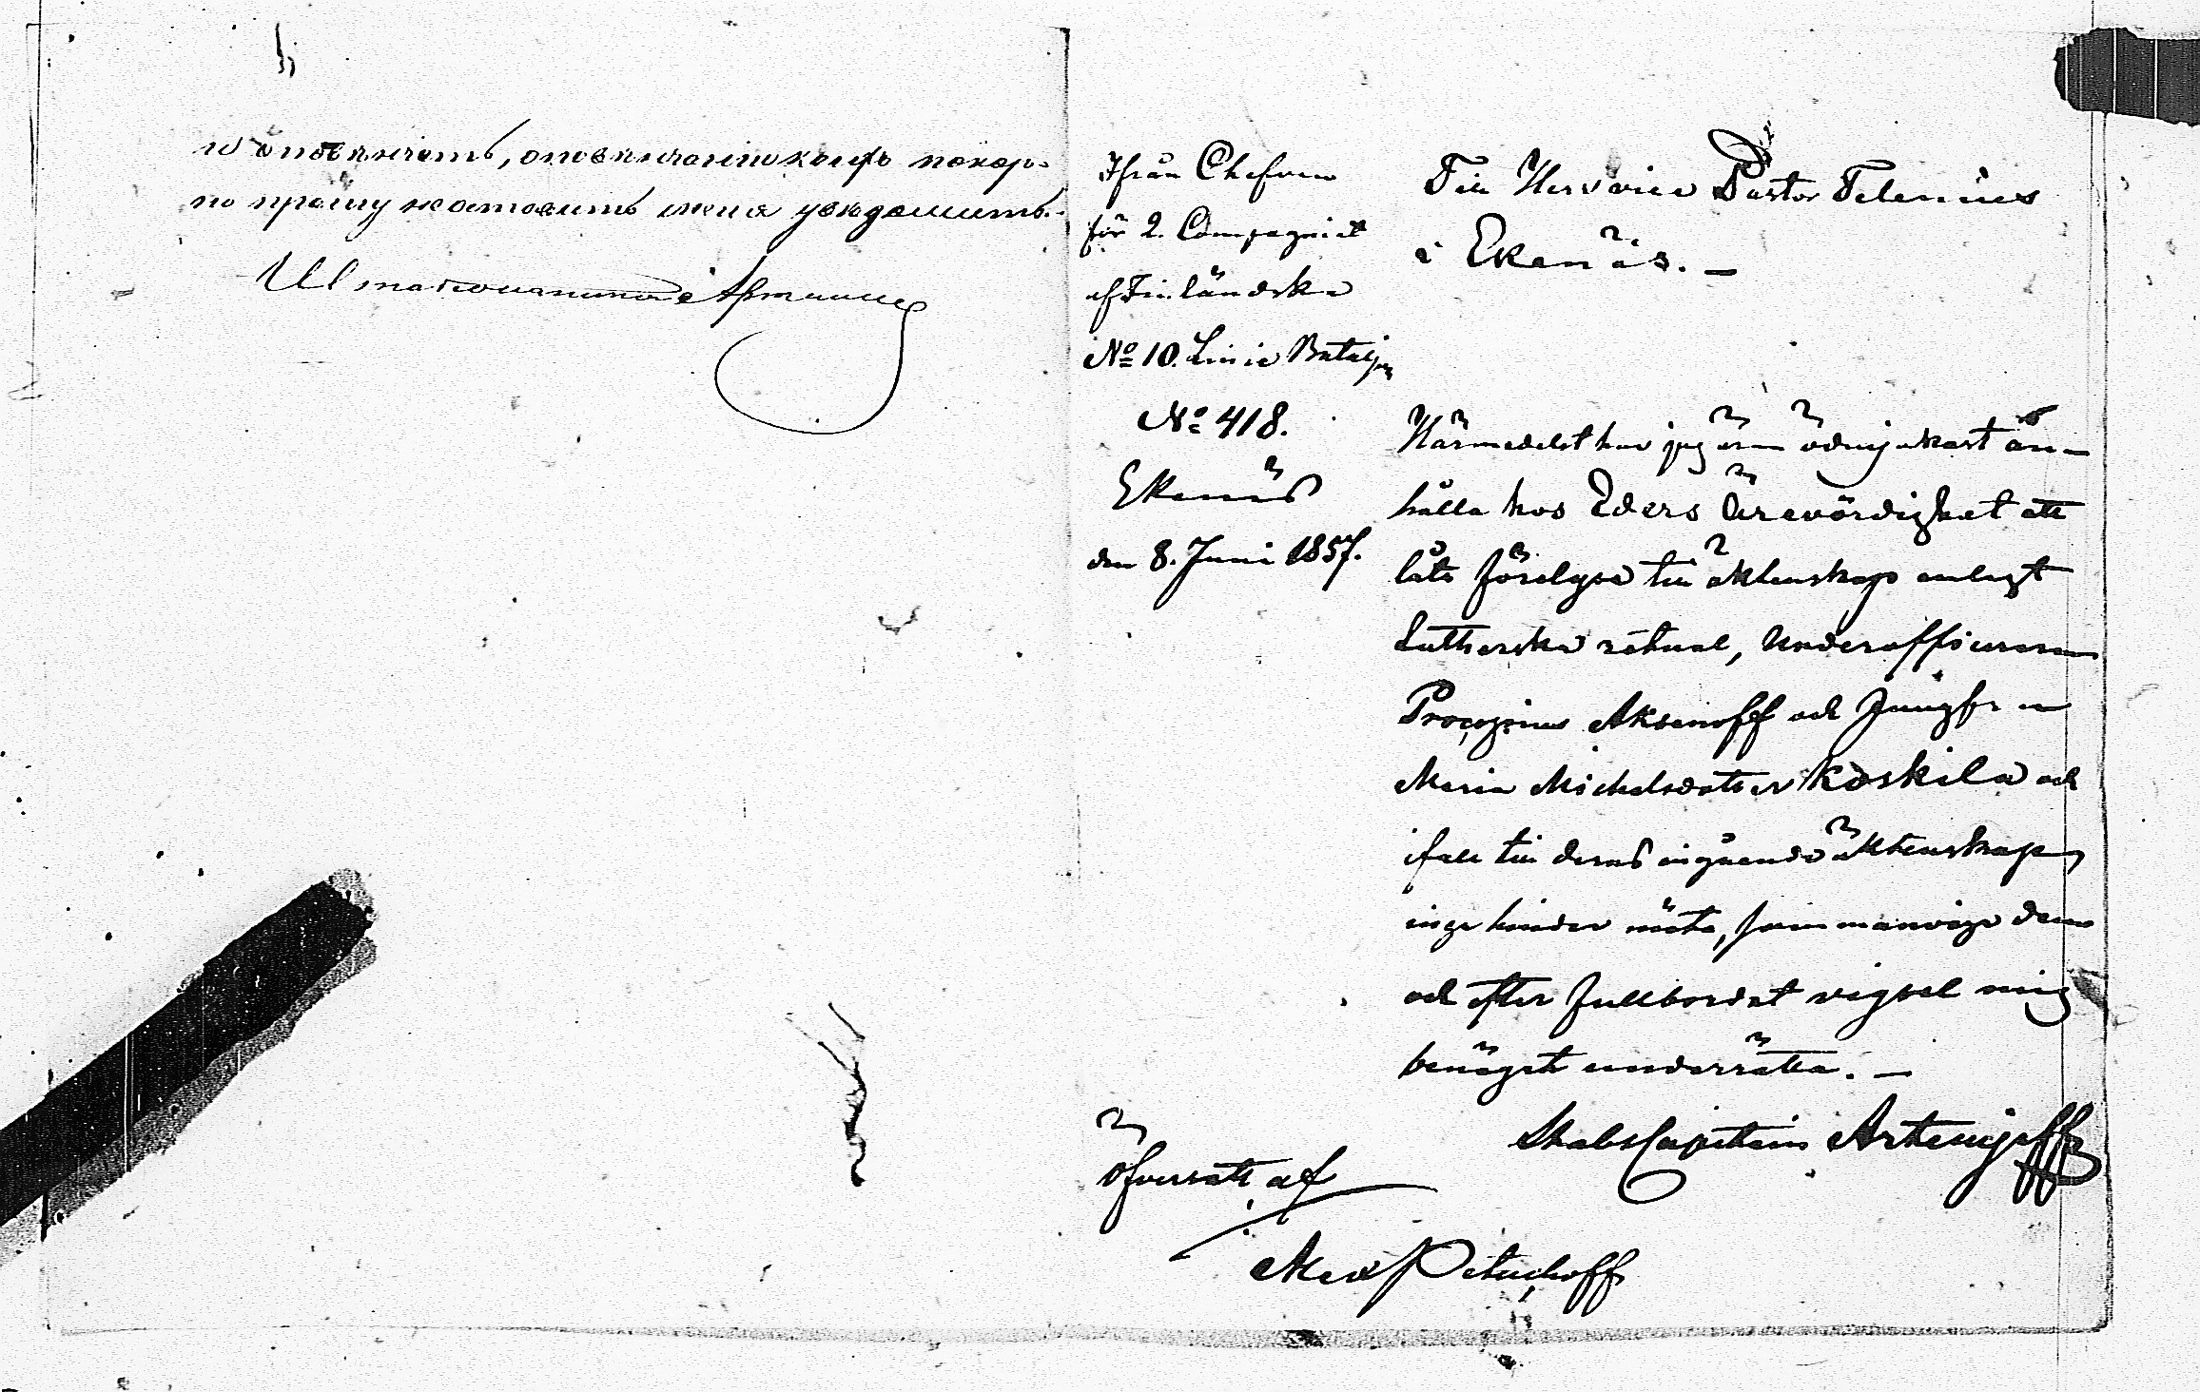 и обвѣнчать, о повѣнчаніи коихъ покор-
но прошу не оставить меня увѣдомить.
Ifrån Chefven
för 2. Compagniet
af Finländska
No 10. Linie Bataljon
No 418.
Ekenäs
den 8. Juni 1857.
Till Herr vice Pastor Telenius
i Ekenäs. —
Härmedelst har jag äran ödmjukast an-
hålla hos Eders Ärevördighet att
låta förelysa till äktenskap enligt
Lutherska ritual, Underofficeren
Procopius Aksenoff och Jungfrun
Maria Michelsdotter Koskila och
ifall till deras ingående äktenskap,
inga hinder möta, sammanviga dem
och efter fullbordat vigsel mig
benäget underrätta. —
StabsCapitain Artemjeff
Öfversatt af
Alex Petuchoff